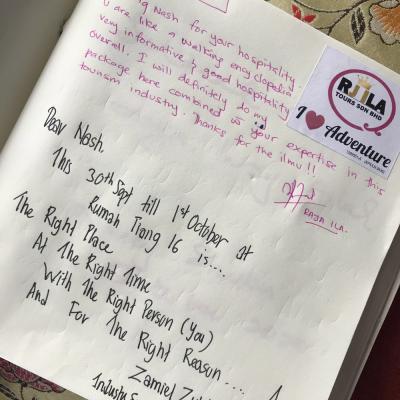 g Nash for your hospitality
u are like a walking encyclopedia
very informative & good hospitality
overall. I will definitely do my
package here combined w your expertise in this
tourism industry. Thanks for the ilmu!!
RAJA ILA.
RJILA
TOURS SDN BHD
I ❤ Adventure
Dear Nash
This 30th Sept till 1st October at
Rumah Tiang 16 is...
The Right Place
At The Right Time
With The Right Person (You)
And For The Right Reason....
Zamiel